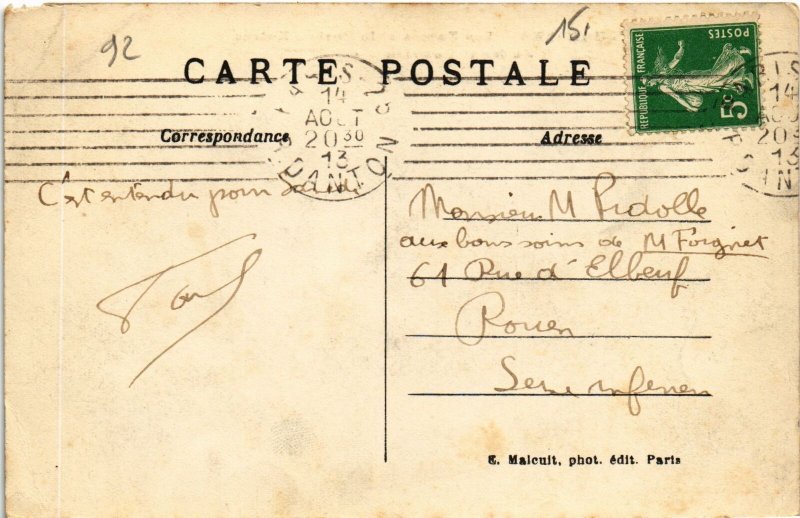 92
15
CARTE POSTALE
POSTES
REPUBLIQUE FRANÇAISE
5c
PARIS
14
AOUT
20 30
13
DANTON
Correspondance
Adresse
C'est entendu pour Samedi
Paul
Monsieur M Pidolle
aux bons soins de M Foignet
61 Rue d'Elbeuf
Rouen
Seine inferieure
E. Malcuit, phot. édit. Paris